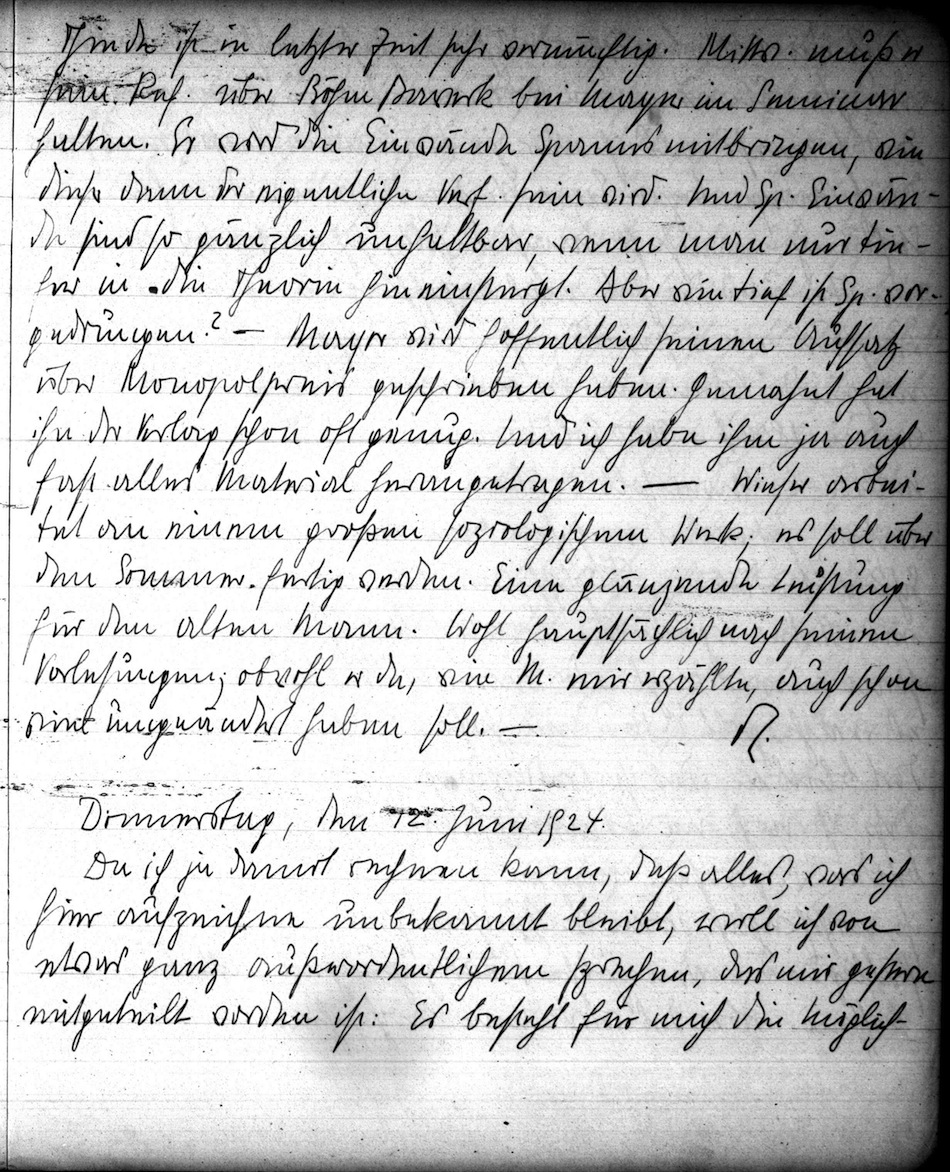 Thinde ist in letzter Zeit sehr vernünftig. Mittw. muß er
sein. Ref. über Böhm Bawerk bei Mayer im Seminar
halten. Er wird die Einwände Spanns mitbringen, wie
diese dann der eigentliche Verf. sein wird. Und Sp. Einwän-
de sind so gänzlich unhaltbar, wenn man nur tie-
fer in die Theorie hineinsteigt. Aber wie tief ist Sp. vor-
gedrungen? — Mayer wird hoffentlich seinen Aufsatz
über Monopolpreis geschrieben haben. Gemahnt hat
ihn der Verlag schon oft genug. Und ich habe ihm ja auch
fast alles Material herangetragen. — Wieser arbei-
tet an einem großen soziologischen Werk; es soll über
den Sommer fertig werden. Eine glänzende Leistung
für den alten Mann. Wohl hauptsächlich nach seinen
Vorlesungen; obwohl er da, wie M. mir erzählte, auch schon
viel umgeändert haben soll. —
Donnerstag, den 12. Juni 1924.
Da ich ja damit rechnen kann, daß alles, was ich
hier aufzeichne unbekannt bleibt, will ich von
etwas ganz außerordentlichem sprechen, das mir gestern
mitgeteilt worden ist: Es besteht für mich die Möglich-